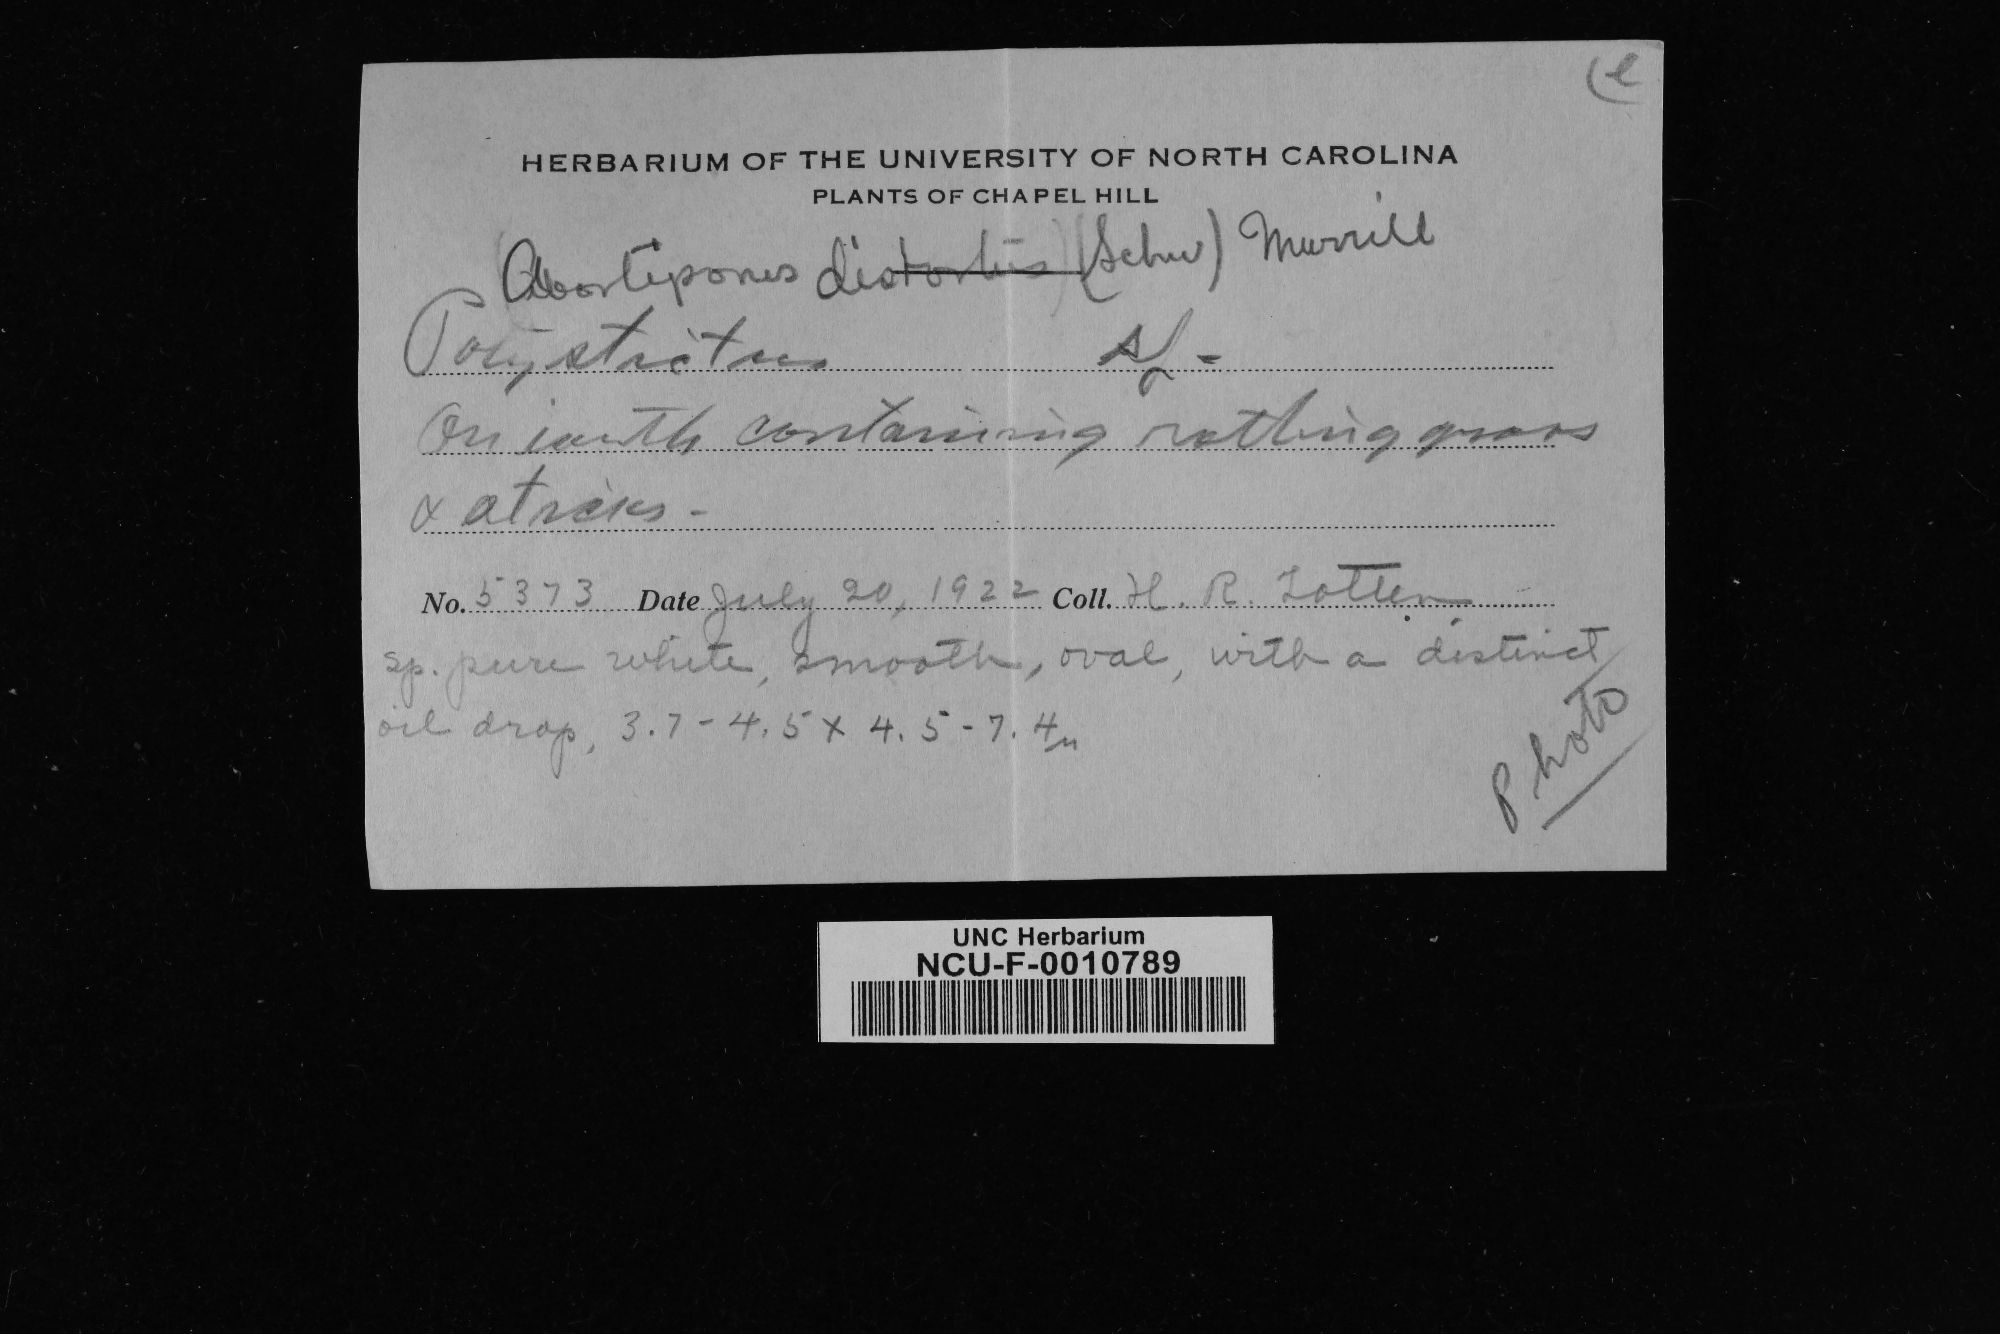 HERBARIUM OF THE UNIVERSITY OF NORTH CAROLINA
PLANTS OF CHAPEL HILL
(Abortiporus distortus) (Schw) Murrill
Polystictus sp -
On earth containing rotting grass
& sticks -
No. 5373 Date July 20, 1922 Coll. H. R. Totten
sp. pure white, smooth, oval, with a distinct
oil drop, 3.7 - 4.5 x 4.5 - 7.4 µ
Photo
UNC Herbarium
NCU-F-0010789